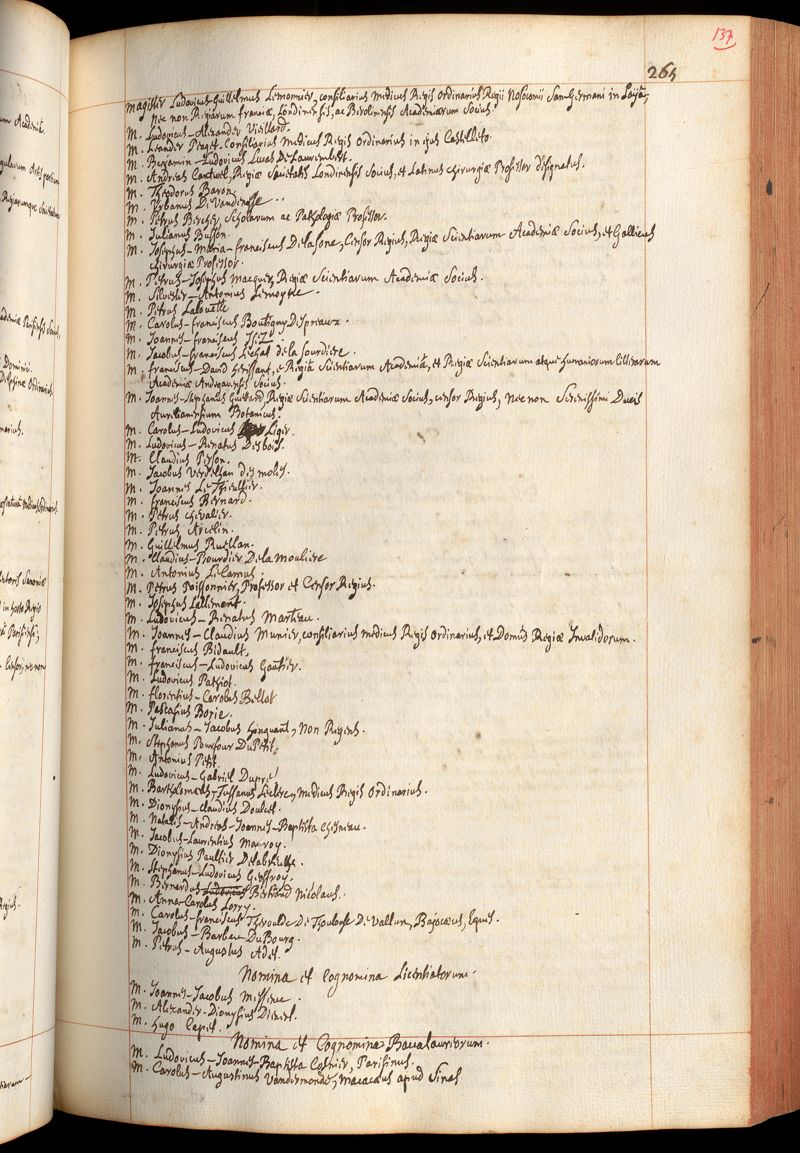 137
265
Magister Ludovicus-Guillelmus Lemonnier, consiliarius Medicus Regis Ordinarius, Regii Nosocomii San-Germani in Laya,
nec non Regiarum franciæ, Londinensis, ac Berolinensis Academiarum Socius.
M. Ludovicus-Alexander Vieillard.
M. Leander Peaget. Consiliarius Medicus Regis Ordinarius in ejus Castelleto.
M. Benjamin-Ludovicus Lucas De Laurembert.
M. Andreas Cantwel, Regiæ Societatis Londinensis Socius, et Latinus chirurgiæ Professor designatus.
M. Theodorus Baron.
M. Urbanus De Vandenesse.
M. Petrus Bercher, Scholarum ac Pathologiæ Professor.
M. Julianus Busson.
M. Josephus-Maria-franciscus Delasone, Censor Regius, Regiæ Scientiarum Academiæ Socius, et Gallicus
chirurgiæ Professor.
M. Petrus-Josephus Macquer, Regiæ Scientiarum Academiæ Socius.
M. Silvester-Antonius Lemoyne.
M. Petrus Lalouette
M. Carolus-franciscus Boutigny Despreaux.
M. Joannes-franciscus Isez.
M. Jacobus-franciscus Lechat de la Sourdiere.
M. franciscus-David Herissant, e Regia Scientiarum Academia, et Regiæ Scientiarum atque humaniorum litterarum
Academiæ Andegavensis Socius.
M. Joannes-Stephanus Guettard Regiæ Scientiarum Academiæ Socius, censor Regius, nec non Serenissimi Ducis
Aurelianensium Botanicus.
M. Carolus-Ludovicus Liger.
M. Ludovicus-Renatus Desbois.
M. Claudius Person.
M. Jacobus Verdelhan des moles.
M. Joannes Le Thieullier.
M. franciscus Bernard.
M. Petrus Chevalier.
M. Petrus Arcelin.
M. Guillelmus Ruellan.
M. Claudius-Bourdier Dela Mouliere
M. Antonius Le Camus.
M. Petrus Poissonnier, Professor et Censor Regius.
M. Josephus Lallemant.
M. Ludovicus-Renatus Marteau.
M. Joannes-Claudius Munier, consiliarius medicus Regis Ordinarius, et Domûs Regiæ Invalidorum.
M. franciscus Bidault.
M. franciscus-Ludovicus Gaultier.
M. Ludovicus Pathiot.
M. florentius-Carolus Bellot
M. Pascasius Borie.
M. Julianus-Jacobus non Regens.
M. Stephanus Pourfour Du Petit.
M. Antonius Petit.
M. Ludovicus-Gabriel Dupré
M. Bartholomæus-Tussanus Leclerc, Medicus Regis Ordinarius.
M. Dionysius-Claudius Doulcet.
M. Natalis-Andreas-Joannes-Baptista Chesneau.
M. Jacobus-Laurentius Mauroy.
M. Dionysius Paultier Delabreulle.
M. Stephanus-Ludovicus Geoffroy.
M. Bernardus Ludovicus Bertrand Nicolaus.
M. Anna-Carolus Lorry.
M. Carolus-franciscus Theroulde De Vallun, Bajocæus, Eques.
M. Jacobus-Barbeu Du Bourg.
M. Petrus-Augustus Adet.
Nomina et Cognomina Licentiatorum.
M. Joannes-Jacobus Messence.
M. Alexander-Dionysius Dienert.
M. Hugo Capet.
Nomina et Cognomina Baccalaureorum.
M. Ludovicus-Joannes-Baptista Cosnier, Parisinus.
M. Carolus-Augustinus Vandermonde, Macacaus apud Sinas